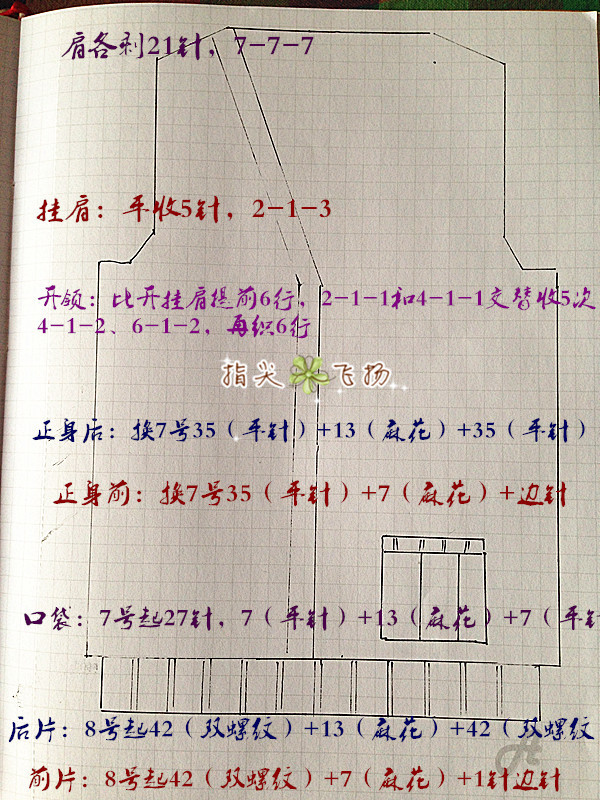 肩各剩21针，7-7-7
挂肩：平收5针，2-1-3
开领：比开挂肩提前6行，2-1-1和4-1-1交替收5次
4-1-2、6-1-2，再织6行
指尖飞扬
正身后：换7号35（平针）+13（麻花）+35（平针）
正身前：换7号35（平针）+7（麻花）+边针
口袋：7号起27针，7（平针）+13（麻花）+7（平针
后片：8号起42（双螺纹）+13（麻花）+42（双螺纹
前片：8号起42（双螺纹）+7（麻花）+1针边针